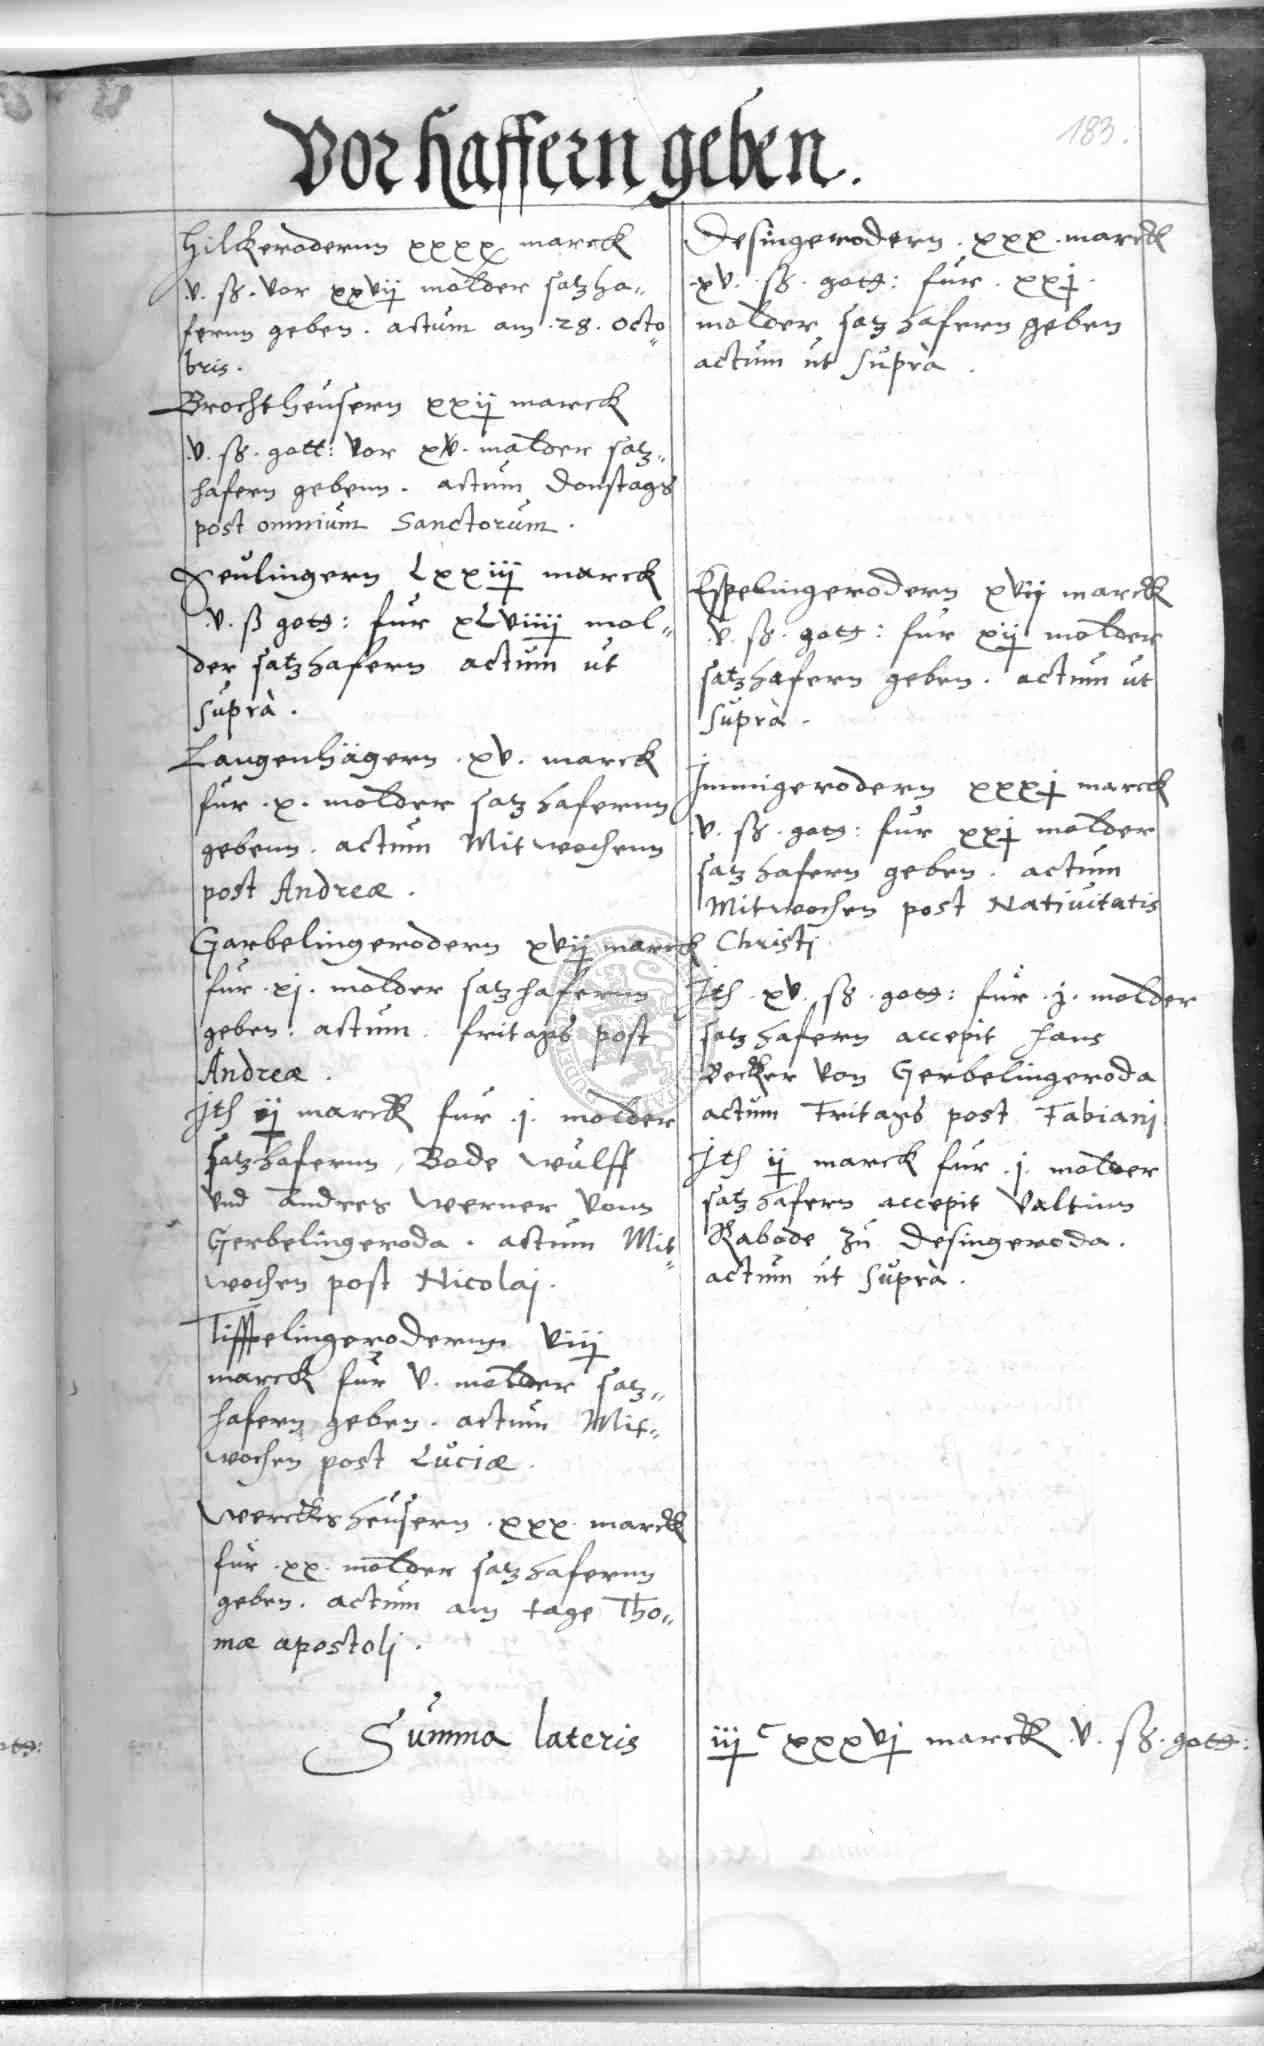 183.
Vor haffern geben.
Hilckerodernn xxxx marck
.v. ß. vor xxvij molder satzha„
fernn geben. actum am .28. Octo„
bris.
Brochtheusern xxij marck
.v. ß. gott: vor xv. molder satz„
hafern gebenn. actum Donstags
post omnium Sanctorum.
Seulingern Lxxiij marck
.v. ß gott: fur xLviiij mol„
der satzhafern actum ut
suprà.
Langenhägern .xv. marck
fur .x. molder satzhafernn
gebenn. actum Mitwochenn
post Andreæ.
Garbelingerodern xvij marck
fur .xj. molder satzhafernn
geben. actum fritags post
Andreæ.
Ith ij marck fur .j. molder
satzhafernn, Bode Wulff
vnd Andres Werner vonn
Gerbelingeroda. actum Mit„
wochen post Nicolaj.
Tifftelingerodernn viij
marck fur v. molder satz„
hafern geben. actum Mit„
wochen post Luciæ.
Wercksheusern .xxx. marck
fur .xx. molder satzhafernn
geben. actum am tage Tho„
mæ apostolj.
Desingerodern .xxx. marck
.xv. ß. gott: fur .xxj.
molder satzhafern geben
actum ut suprà.
Espelingerodern xvij marck
.v. ß. gott: fur xij molder
satzhafern geben. actum ut
suprà.
Immigerodern xxxj marck
.v. ß. gott: fur xxj molder
satzhafern geben. actum
Mitwochen post Nativitatis
Christj
Ith .xv. ß. gott: fur .j. molder
satzhafern accepit Hans
Becker von Gerbelingeroda
actum Fritags post Fabianj
Ith ij marck fur .j. molder
satzhafern accepit Valtinn
Rabode zu Desingeroda.
actum ut suprà.
Summa lateris iij c xxxvj marck .v. ß. gott: